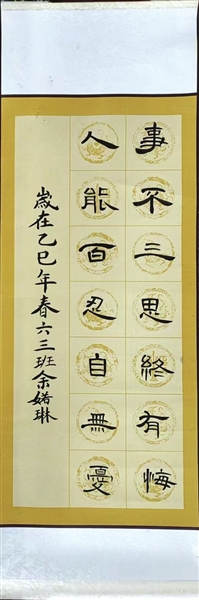 事不三思終有悔
人能百忍自無憂
歲在乙巳年春六三班余婼琳